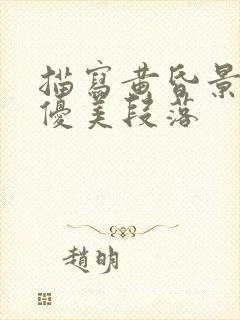 描寫黃昏景
優美段落
趙明